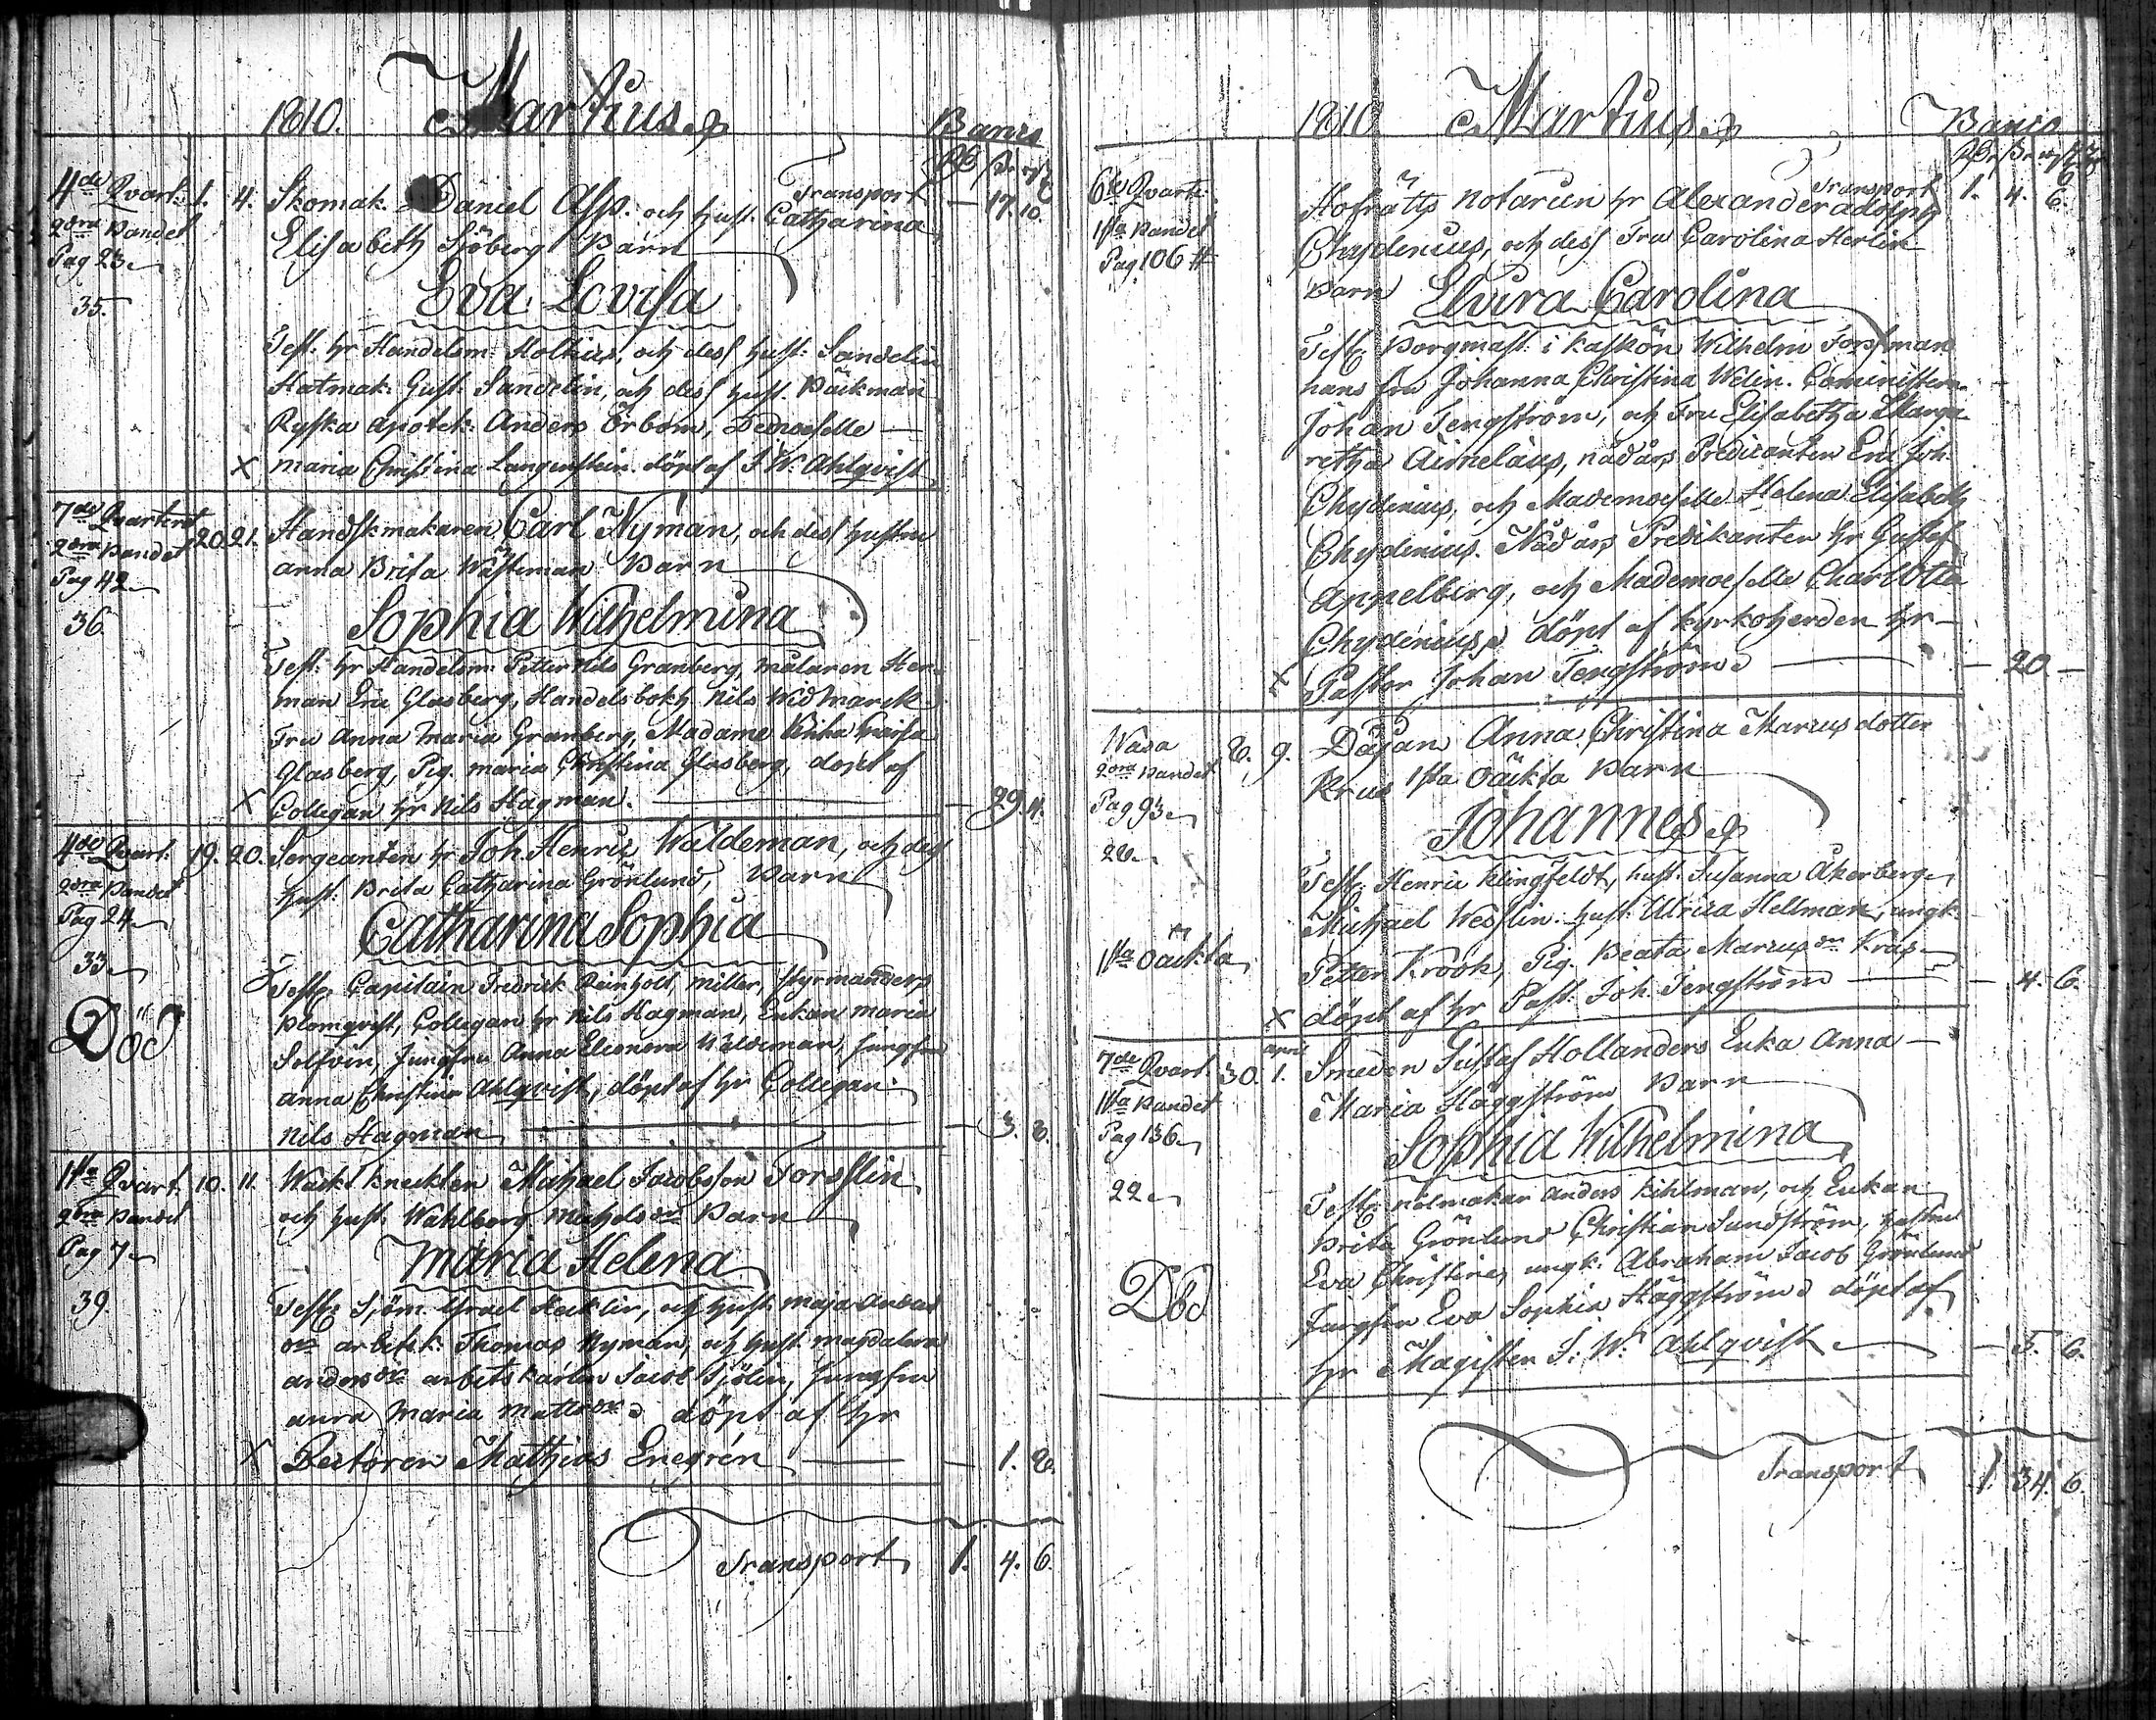 1810. Martius
Banco
Rd s. rst
Transport — 17. 10.
4de Qvart: 1. 4. Skomak. Daniel Asp. och hust. Catharina
2dra Bandet Elisabeth Sjöberg Barn
Pag 23
Eva Lovisa
35.
Test: hr Handelsm: Holtius, och dess hust: Sandelin
Hatmak: Gust: Sandelin, och dess hust. Bäckman
Ryska Apotek: Anders Örbom, Demoiselle —
x Maria Christina Langenstein. döpt af J. W. Ahlqvist
7de Qvarteret 20. 21. Handskmakaren Carl Nyman, och dess hustru
2dra Bandet Anna Brita Wästeman Barn
Pag 42
Sophia Wilhelmina
36.
Test: hr Handelsm: Petter Nils Granberg, målaren Her-
man Eric Glasberg, Handelsbokh. Nils Widmarck
Fru Anna Maria Granberg, Madame
Glasberg, Pig. Maria Christina Glasberg, döpt af
x Collegan hr Nils Hagman. — 29. 4.
4de Qvart: 19. 20. Sergeanten hr Joh. Henric Waldeman, och dess
2dra Bandet hust: Brita Catharina Grönlund, Barn
Pag 24
Catharina Sophia
33
Test: Capitain Fredrik Reinhold Miller, Styrman
Död Blomqvist, Collegan hr Nils Hagman, Enkan Maria
Solfvin, Jungfru Anna Eleonora Waldeman, Jungfru
Anna Christina Ahlqvist, döpt af hr Collegan
Nils Hagman — 3. 8.
1sta Qvart. 10. 11. Wackt kneckten Michael Jacobsson Forsslin
2dra Bandet och hust. Wahlborg Mathsdr Barn
Pag 7
Maria Helena
39
Test: Sjöm. Israel Hecklin, och hust. Maja Anders
dr arbetsk. Thomas Nyman, och hust. Magdalena
Andersdr arbetskarlen Jacob Sjölin, Jungfru
Anna Maria Mattsdr döpt af hr
x Rectoren Mathias Enegrén — 1. 8.
Transport 1. 4. 6.
1810 Martius
Banco
Transport 1. 4. 6.
6te Qvart: Hofrätts Notarien hr Alexander Adolph
1sta Bandet Chydenius, och dess Fru Carolina Herlin
Pag 106
Barn Elvira Carolina
Test: Borgmäst: i Kaskön Wilhelm Forssman
hans fru Johanna Christina Welin. Comministern
Johan Tengström, och Fru Elisabetha Marga-
retha Aimelæus, nådårs Predicanten Eric Joh.
Chydenius, och Mademoiselle Helena Elisabeth
Chydenius. Nådårs Predikanten hr Gustaf
Appelberg, och Mademoiselle Charlotta
Chydenius döpt af kyrkoherden hr
x Pastor Johan Tengström — 20 —
Wasa 8. 9. Dejan Anna Christina Marcusdotter
2dra Bandet Krus 1sta Oäckta Barn
Pag 93
Johannes
28.
Test: Henric Klingfeldt, hust: Susanna Åkerberg
Michael Wesslin. hust. Ulrica Hellman, ungk.
1sta Oäckta Petter Krook, Pig. Beata Marcusdr Krus
x döpt af hr Past: Joh. Tengström — 4. 6.
april
7de Qvart. 30. 1. Smeden Gustaf Hollanders Enka Anna
1sta Bandet Maria Häggström Barn
Pag 136
Sophia Wilhelmina
22
Test: nålmakar Anders Kihlman, och Enkan
Brita Grönlund Christian Sundström, hustru
Död Eva Christina, ungk: Abraham Jacob Grönlund
Jungfru Eva Sophia Häggström döpt af
hr Magister J: W: Ahlqvist — 5. 6.
Transport 1. 34. 6.